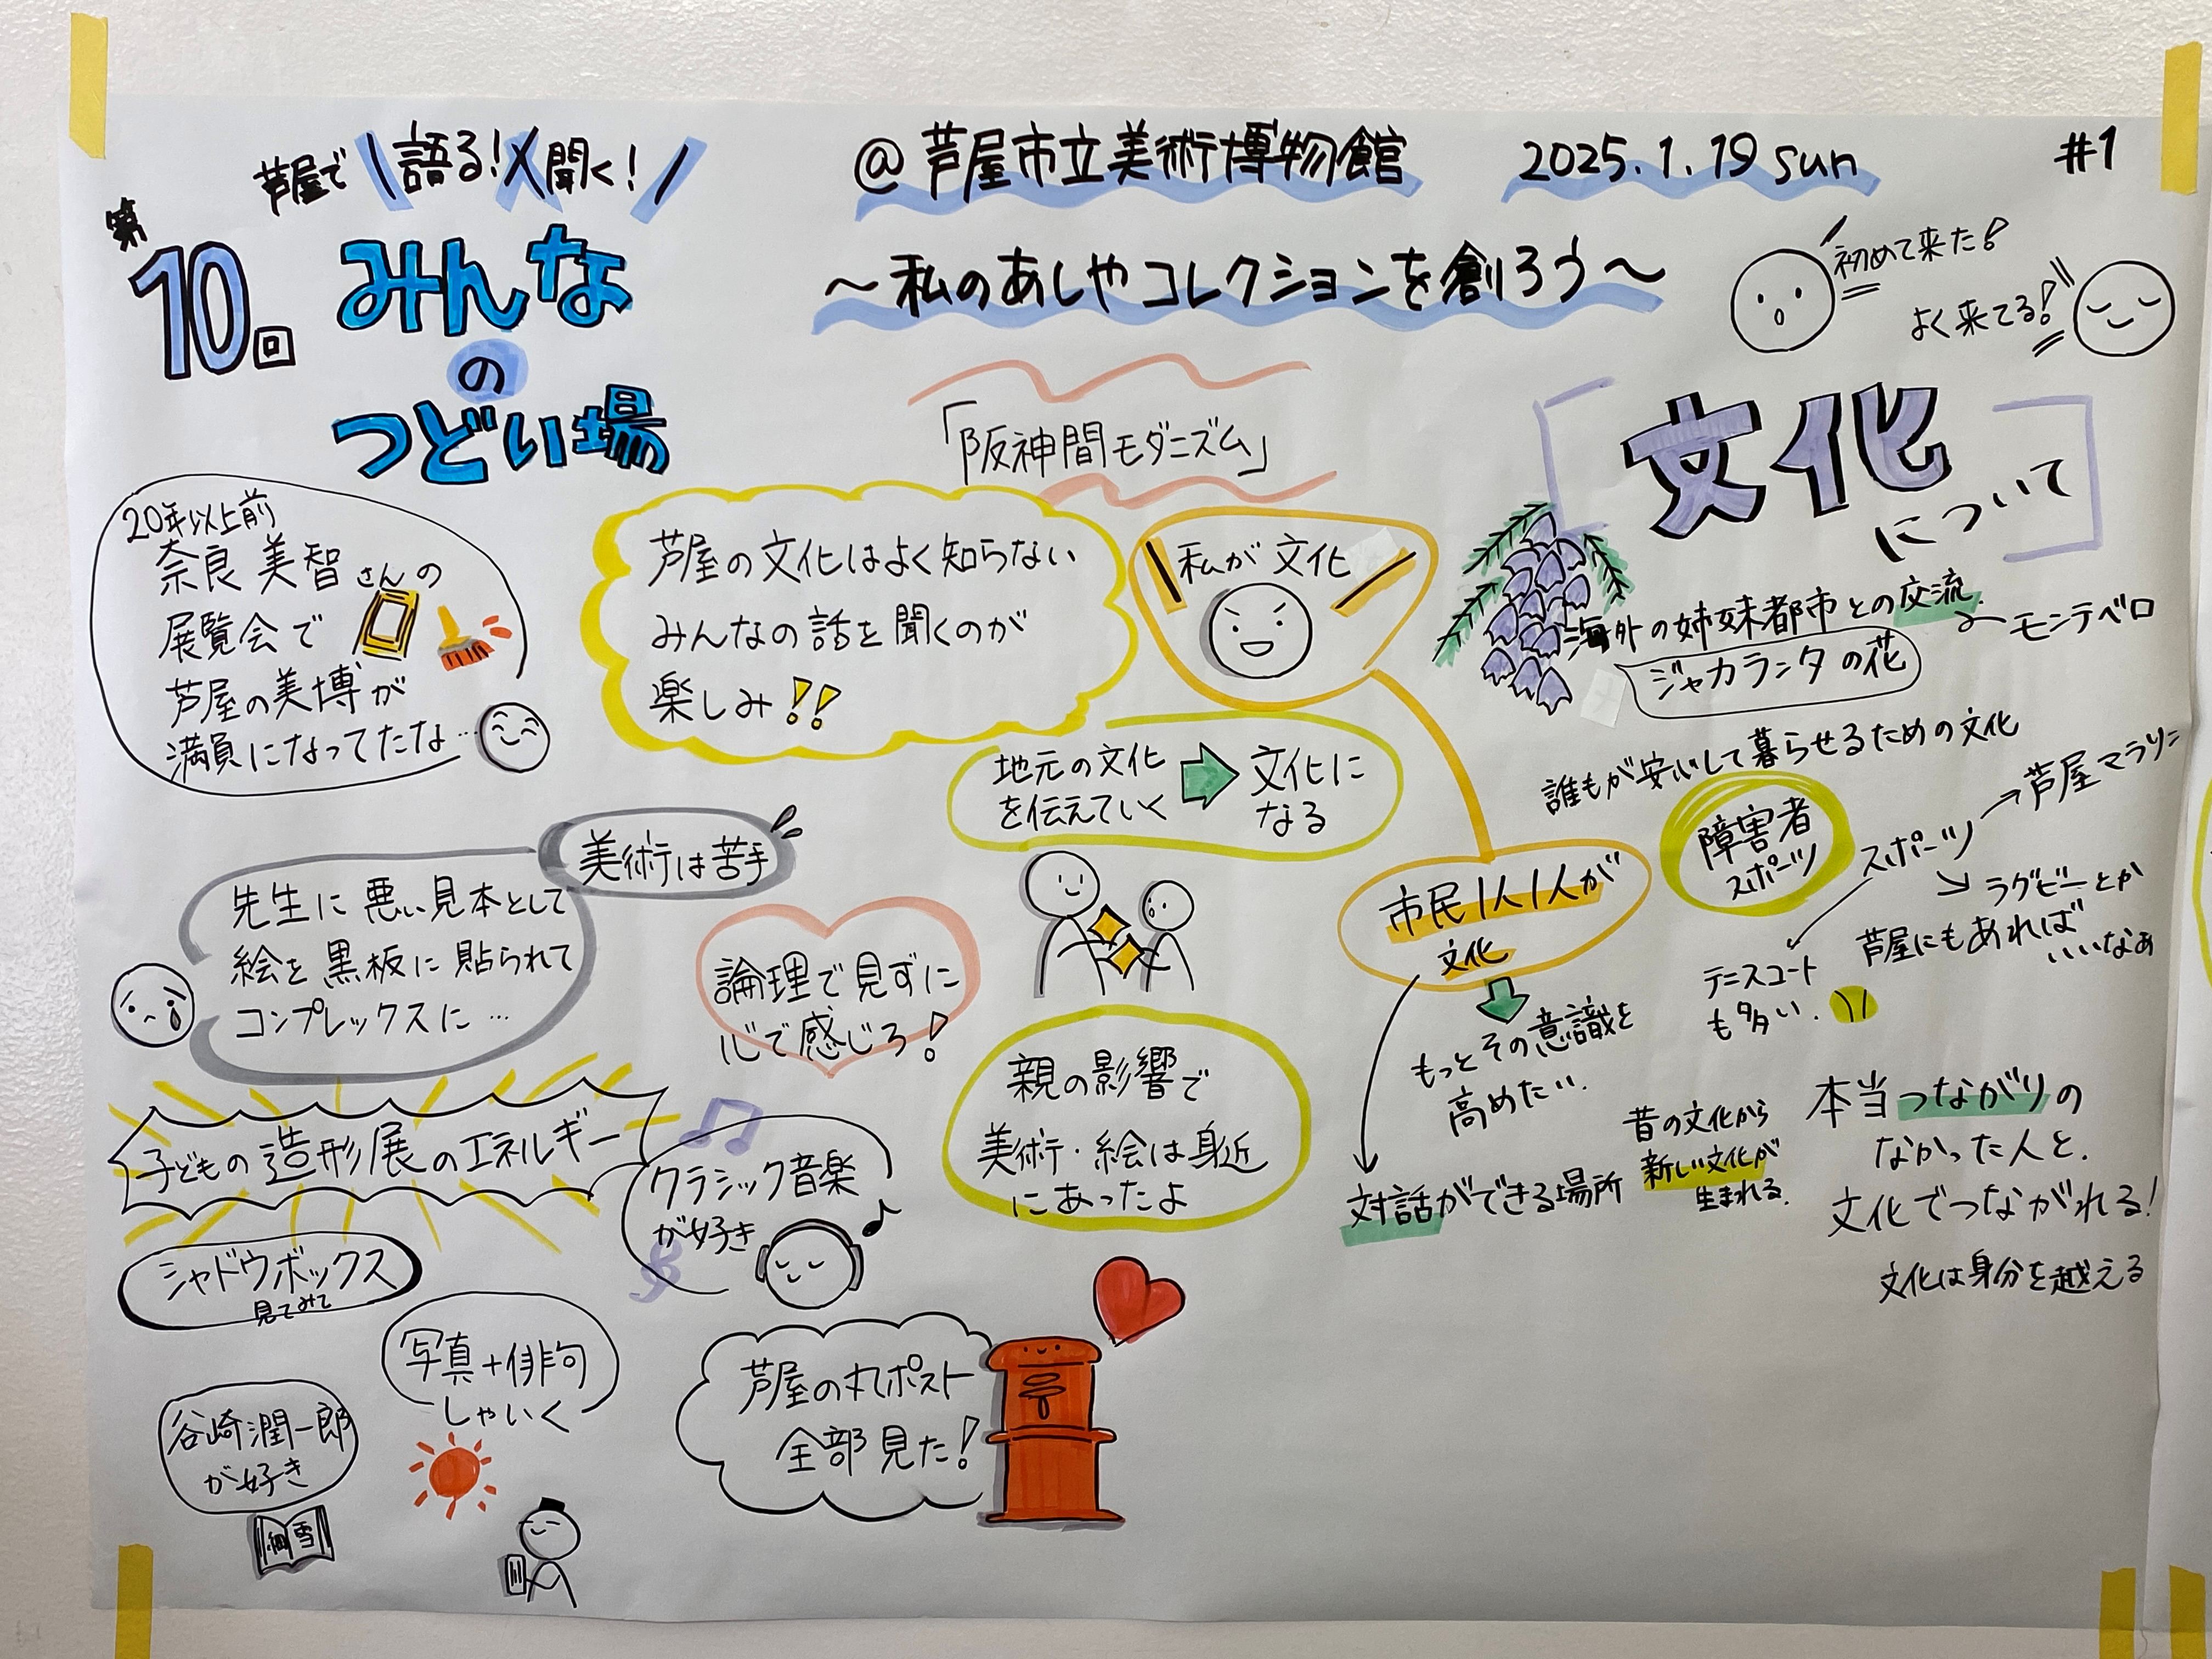 芦屋で 語る！×聞く！
第10回
みんな
の
つどい場
@芦屋市立美術博物館
2025.1.19 sun
#1
～私のあしやコレクションを創ろう～
初めて来た！
よく来てる！
「阪神間モダニズム」
文化
について
20年以上前
奈良美智さんの
展覧会で
芦屋の美博が
満員になってたな…
芦屋の文化はよく知らない
みんなの話を聞くのが
楽しみ!!
私が文化
海外の姉妹都市との交流
モンテベロ
ジャカランタの花
地元の文化
を伝えていく
文化に
なる
誰もが安心して暮らせるための文化
障害者
スポーツ
スポーツ
芦屋マラソン
ラグビーとか
芦屋にもあれば
いいなぁ
テニスコート
も多い.
美術は苦手
先生に悪い見本として
絵を黒板に貼られて
コンプレックスに…
論理で見ずに
心で感じろ！
市民1人1人が
文化
もっとその意識を
高めたい.
対話ができる場所
昔の文化から
新しい文化が
生まれる.
本当つながりの
なかった人と.
文化でつながれる！
文化は身分を越える
親の影響で
美術・絵は身近
にあったよ
子どもの造形展のエネルギー
クラシック音楽
が好き
シャドウボックス
見てみて
写真+俳句
しゃいく
谷崎潤一郎
が好き
細雪
芦屋の丸ポスト
全部見た！
〒